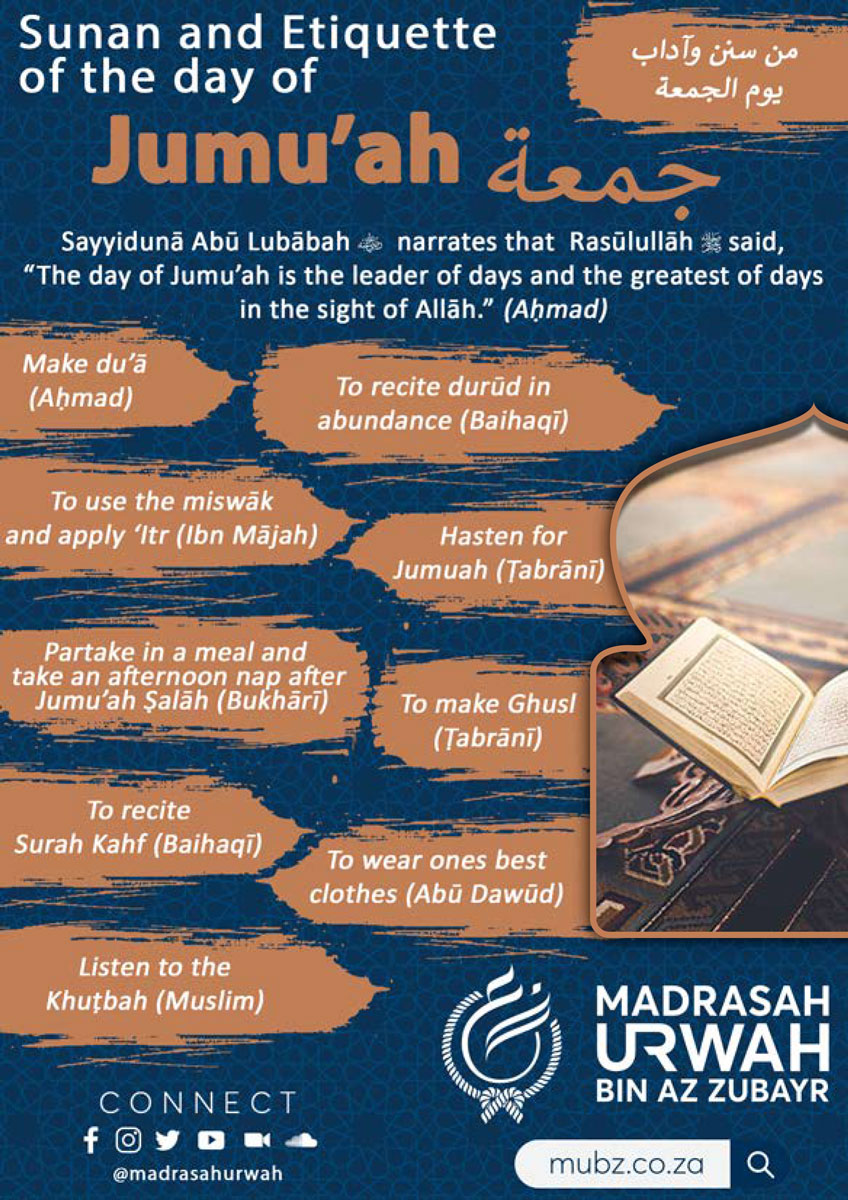 Sunan and Etiquette
of the day of
من سنن وآداب
يوم الجمعة
Jumu’ah جمعة
Sayyidunā Abū Lubābah narrates that Rasūlullāh ﷺ said,
“The day of Jumu’ah is the leader of days and the greatest of days
in the sight of Allāh.” (Aḥmad)
Make du’ā
(Aḥmad)
To recite durūd in
abundance (Baihaqī)
To use the miswāk
and apply ‘Itr (Ibn Mājah)
Hasten for
Jumuah (Ṭabrānī)
Partake in a meal and
take an afternoon nap after
Jumu’ah Ṣalāh (Bukhārī)
To make Ghusl
(Ṭabrānī)
To recite
Surah Kahf (Baihaqī)
To wear ones best
clothes (Abū Dawūd)
Listen to the
Khuṭbah (Muslim)
MADRASAH
URWAH
BIN AZ ZUBAYR
CONNECT
@madrasahurwah
mubz.co.za